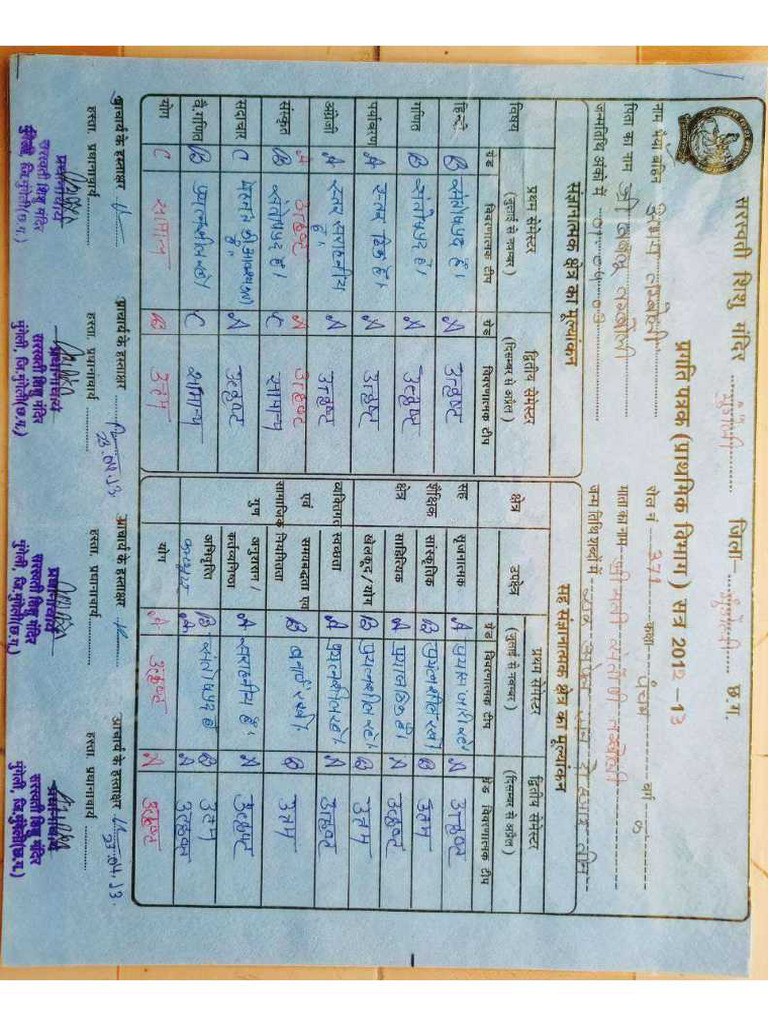 सरस्वती शिशु मंदिर मुंगेली जिला - मुंगेली छ.ग.
प्रगति पत्रक (प्राथमिक विभाग) सत्र 2012 - 13
नाम भैया बहिन
रोल नं. 371 कक्षा पंचम वर्ग
पिता का नाम श्री
माता का नाम- श्रीमती
जन्मतिथि अंकों में
जन्म तिथि शब्दों में-
संज्ञानात्मक क्षेत्र का मूल्यांकन
विषय प्रथम सेमेस्टर (जुलाई से नवम्बर) द्वितीय सेमेस्टर (दिसम्बर से अप्रैल)
ग्रेड विवरणात्मक टीप ग्रेड विवरणात्मक टीप
हिन्दी B संतोषप्रद है। A उत्कृष्ट
गणित B संतोषप्रद है। A उत्कृष्ट
पर्यावरण A उत्तम A उत्कृष्ट
अंग्रेजी A स्तर सराहनीय है। A उत्कृष्ट
संस्कृत B संतोषप्रद है। C सामान्य
A उत्कृष्ट A उत्कृष्ट
सदाचार C A उत्कृष्ट
वै.गणित B प्रयत्नशील रहें। C सामान्य
योग C सामान्य B उत्तम
सह संज्ञानात्मक क्षेत्र का मूल्यांकन
क्षेत्र उपक्षेत्र प्रथम सेमेस्टर (जुलाई से नवम्बर) द्वितीय सेमेस्टर (दिसम्बर से अप्रैल)
ग्रेड विवरणात्मक टीप ग्रेड विवरणात्मक टीप
सह शैक्षिक क्षेत्र
सृजनात्मक A प्रयास जारी रखें A उत्कृष्ट
सांस्कृतिक B प्रयत्नशील रहें B उत्तम
साहित्यिक A A उत्कृष्ट
खेलकूद/योग B प्रयत्नशील रहें। B उत्तम
व्यक्तिगत एवं सामाजिक गुण
स्वच्छता A प्रयत्नशील रहें। A उत्कृष्ट
समयबद्धता एवं नियमितता B बनाएँ रखें। B उत्तम
अनुशासन / कर्तव्यनिष्ठा A सराहनीय है। A उत्कृष्ट
अभिवृत्ति B संतोषप्रद है B उत्तम
योग A उत्कृष्ट A उत्कृष्ट
आचार्य के हस्ताक्षर आचार्य के हस्ताक्षर 23.04.13 आचार्य के हस्ताक्षर आचार्य के हस्ताक्षर 23.04.13
हस्ता. प्रधानाचार्य हस्ता. प्रधानाचार्य हस्ता. प्रधानाचार्य हस्ता. प्रधानाचार्य
प्रधानाचार्य प्रधानाचार्य प्रधानाचार्य प्रधानाचार्य
सरस्वती शिशु मंदिर सरस्वती शिशु मंदिर सरस्वती शिशु मंदिर सरस्वती शिशु मंदिर
मुंगेली, जि.मुंगेली(छ.ग.) मुंगेली, जि.मुंगेली(छ.ग.) मुंगेली, जि.मुंगेली(छ.ग.) मुंगेली, जि.मुंगेली(छ.ग.)